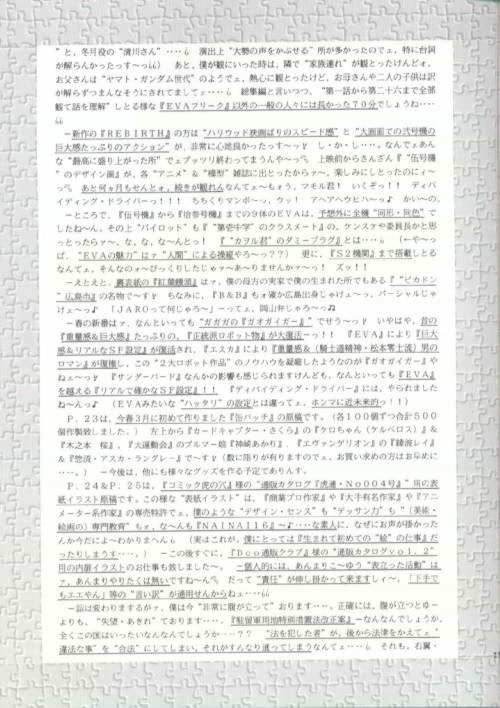 ”と、冬月役の“清川さん”‥‥6 演出上“大勢の声をかぶせる”所が多かったのでェ、特に台詞
が解らんかったっす〜っ66) あと、僕が観にいった時は、隣で“家族連れ”が観とったけんどォ、
お父さんは“ヤマト・ガンダム世代”のようでェ、熱心に観とったけど、お母さんや二人の子供は訳
が解らずつまんなそうにされてましてェ‥‥6 総集編と言いつつ、“第一話から第二十六まで全部
観て話を理解”しとる様な『EVAフリーク』以外の一般の人々には長かった70分でしょうね‥‥
66
−新作の『REBIRTH』の方は“ハリウッド映画ばりのスピード感”と“大画面での弐号機の
巨大感たっぷりのアクション”が、非常に心地良かったっす〜っ♪ し・か・し‥‥。なんでェあん
な“最高に盛り上がった所”でェプッツリ終わってまうんや〜っ 上映前からさんざん『“伍号機
”のデザイン画』が、各“アニメ”&“模型”雑誌に出とったからァ〜、楽しみにしとったのにィ
〜っ あと何ヵ月もせんとォ、続きが観れんなんてェ〜もゥ、マモル君！ いくぞっ！！ ディバ
イディング・ドライバーっ！！！ ちちくりマンボ〜っ、ウッ！ アヘアヘウヒハ〜っ♪ かい〜の。
−ところで、『伍号機』から『拾参号機』までの9体のEVAは、予想外に全機“同形・同色”で
したね〜ん。その上“パイロット”も『“第壱中学”のクラスメート』の、ケンスケや委員長かと思
っとったらァ〜、な、な、な〜んとっ！ 『“カヲル君”のダミープラグ』とは‥‥6 (−や〜っ
ぱ、“EVAの魅力”はァ“人間”による操縦やろ〜っ？？) 更に、『S2機関』まで搭載しとる
なんてェ、そんなのォ〜びっくりしたじゃァ〜あ〜りませんかァ〜っ！ ズッ！！
−ええとォ、裏表紙の『紅葉饅頭』はァ、僕の母方の実家で僕の生まれた所でもある『“ピカドン
”広島市』の名物で〜す♪ ちなみに、『B&B』もォ確か広島出身じゃけェ〜っ、パーシャルじゃ
けェ〜っ♪ (JAROって何じゃろ〜♪−ってェ、岡山弁じゃろ〜っ
−春の新番はァ、なんといっても“ガガガの『ガオガイガー』”でせう〜っ♪ いやはや、昔の
『重量感&巨大感』たっぷりの、『正統派ロボット物』が大復活〜っ！！ 『EVA』により『巨大
感&リアルなSF設定』が復活され、『エスカ』により『重量感&(騎士道精神・松本零士流)男の
ロマン』が復権し、この“2大ロボット作品”のノウハウを凝縮したようなのが『ガオガイガー』や
ねェ〜っ♪ 『サンダーバード』なんかの影響も感じられますけんども、なんといっても『EVA』
を越える『リアルで確かなSF設定』！！ 『ディバイディング・ドライバー』には、やられました
ね〜んっ♪ (EVAみたいな“ハッタリ”の設定とは違ってェ、ホンマに近未来的っ！！)
P. 23は、今春3月に初めて作りました『缶バッヂ』の原稿です。(各100個ずつ合計500
個作製致しました。) 左上から『カードキャプター・さくら』の『ケロちゃん(ケルベロス)』&
『木之本 桜』、『大運動会』のブルマー娘『神崎あかり』、『エヴァンゲリオン』の『綾波レイ』
&『惣流・アスカ・ラングレー』で〜す♪ (数に限りが有りますのでェ、お買い求めの方はお早めに
‥‥。) −今後は、他にも様々なグッズを作る予定でありんす。
P. 24&P. 25は、『コミック虎の穴』様の“通販カタログ『虎通・No004号』”用の表
紙イラスト原稿です。この様な“表紙イラスト”は、『商業プロ作家』や『大手有名作家』や『アニ
メーター系作家』の専売特許でェ、僕のような“デザイン・センス”も“デッサン力”も“(美術・
絵画の)専門教育”もォ、な〜んも『NAINAI16』〜♪‥‥な素人に、なぜにお声が掛かった
んか今だによ〜わかりまへん6 (実はこれが、僕にとっては『生まれて初めての“絵”の仕事』だ
ったりしまうす‥‥。) −この後すぐに、『Dco通販クラブ』様の“通販カタログvol. 2”
用の内扉イラストのお仕事も致しました〜。 −個人的には、あんまりこ〜ゆう“表立った活動”は
ァ、あんまりやりたくは無いですね〜ん だって“責任”が伸し掛かって来ますしィ〜。『下手で
もエエやん』等の“言い訳”が通用せんからねェ‥‥66
−話は変わりまするがァ、僕は今“非常に腹が立って”おります‥‥。正確には、腹が立つとゆ〜
よりも、“失望・あきれ”ております‥‥。『駐留軍用地特別措置法改正案』−なんなんでしょうか、
全くこの国はいったいなんなんでしょうか‥‥？？ “法を犯した者”が、後から法律をかえてェ“
違法な事”を“合法”にしてしまい、それがすんなり通ってしまうなんてェ‥‥6 それも、右翼・